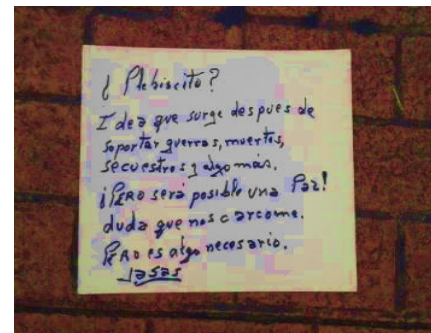 ¿ Plebiscito?
Idea que surge despues de
soportar guerras, muertos,
secuestros y algo más.
¡PERO será posible una Paz!
duda que nos carcome.
PERO es algo necesario.
Jasas